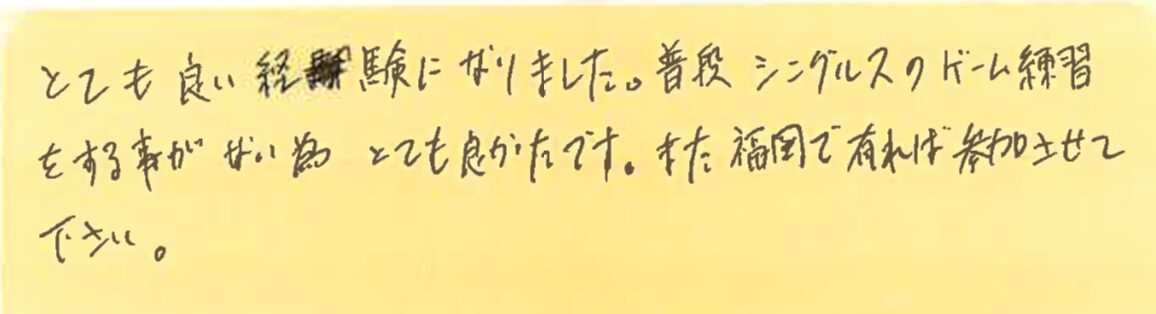 とても良い経験になりました。普段シングルスのゲーム練習
をする事がない為とても良かたです。また福岡で有れば参加させて
下さい。